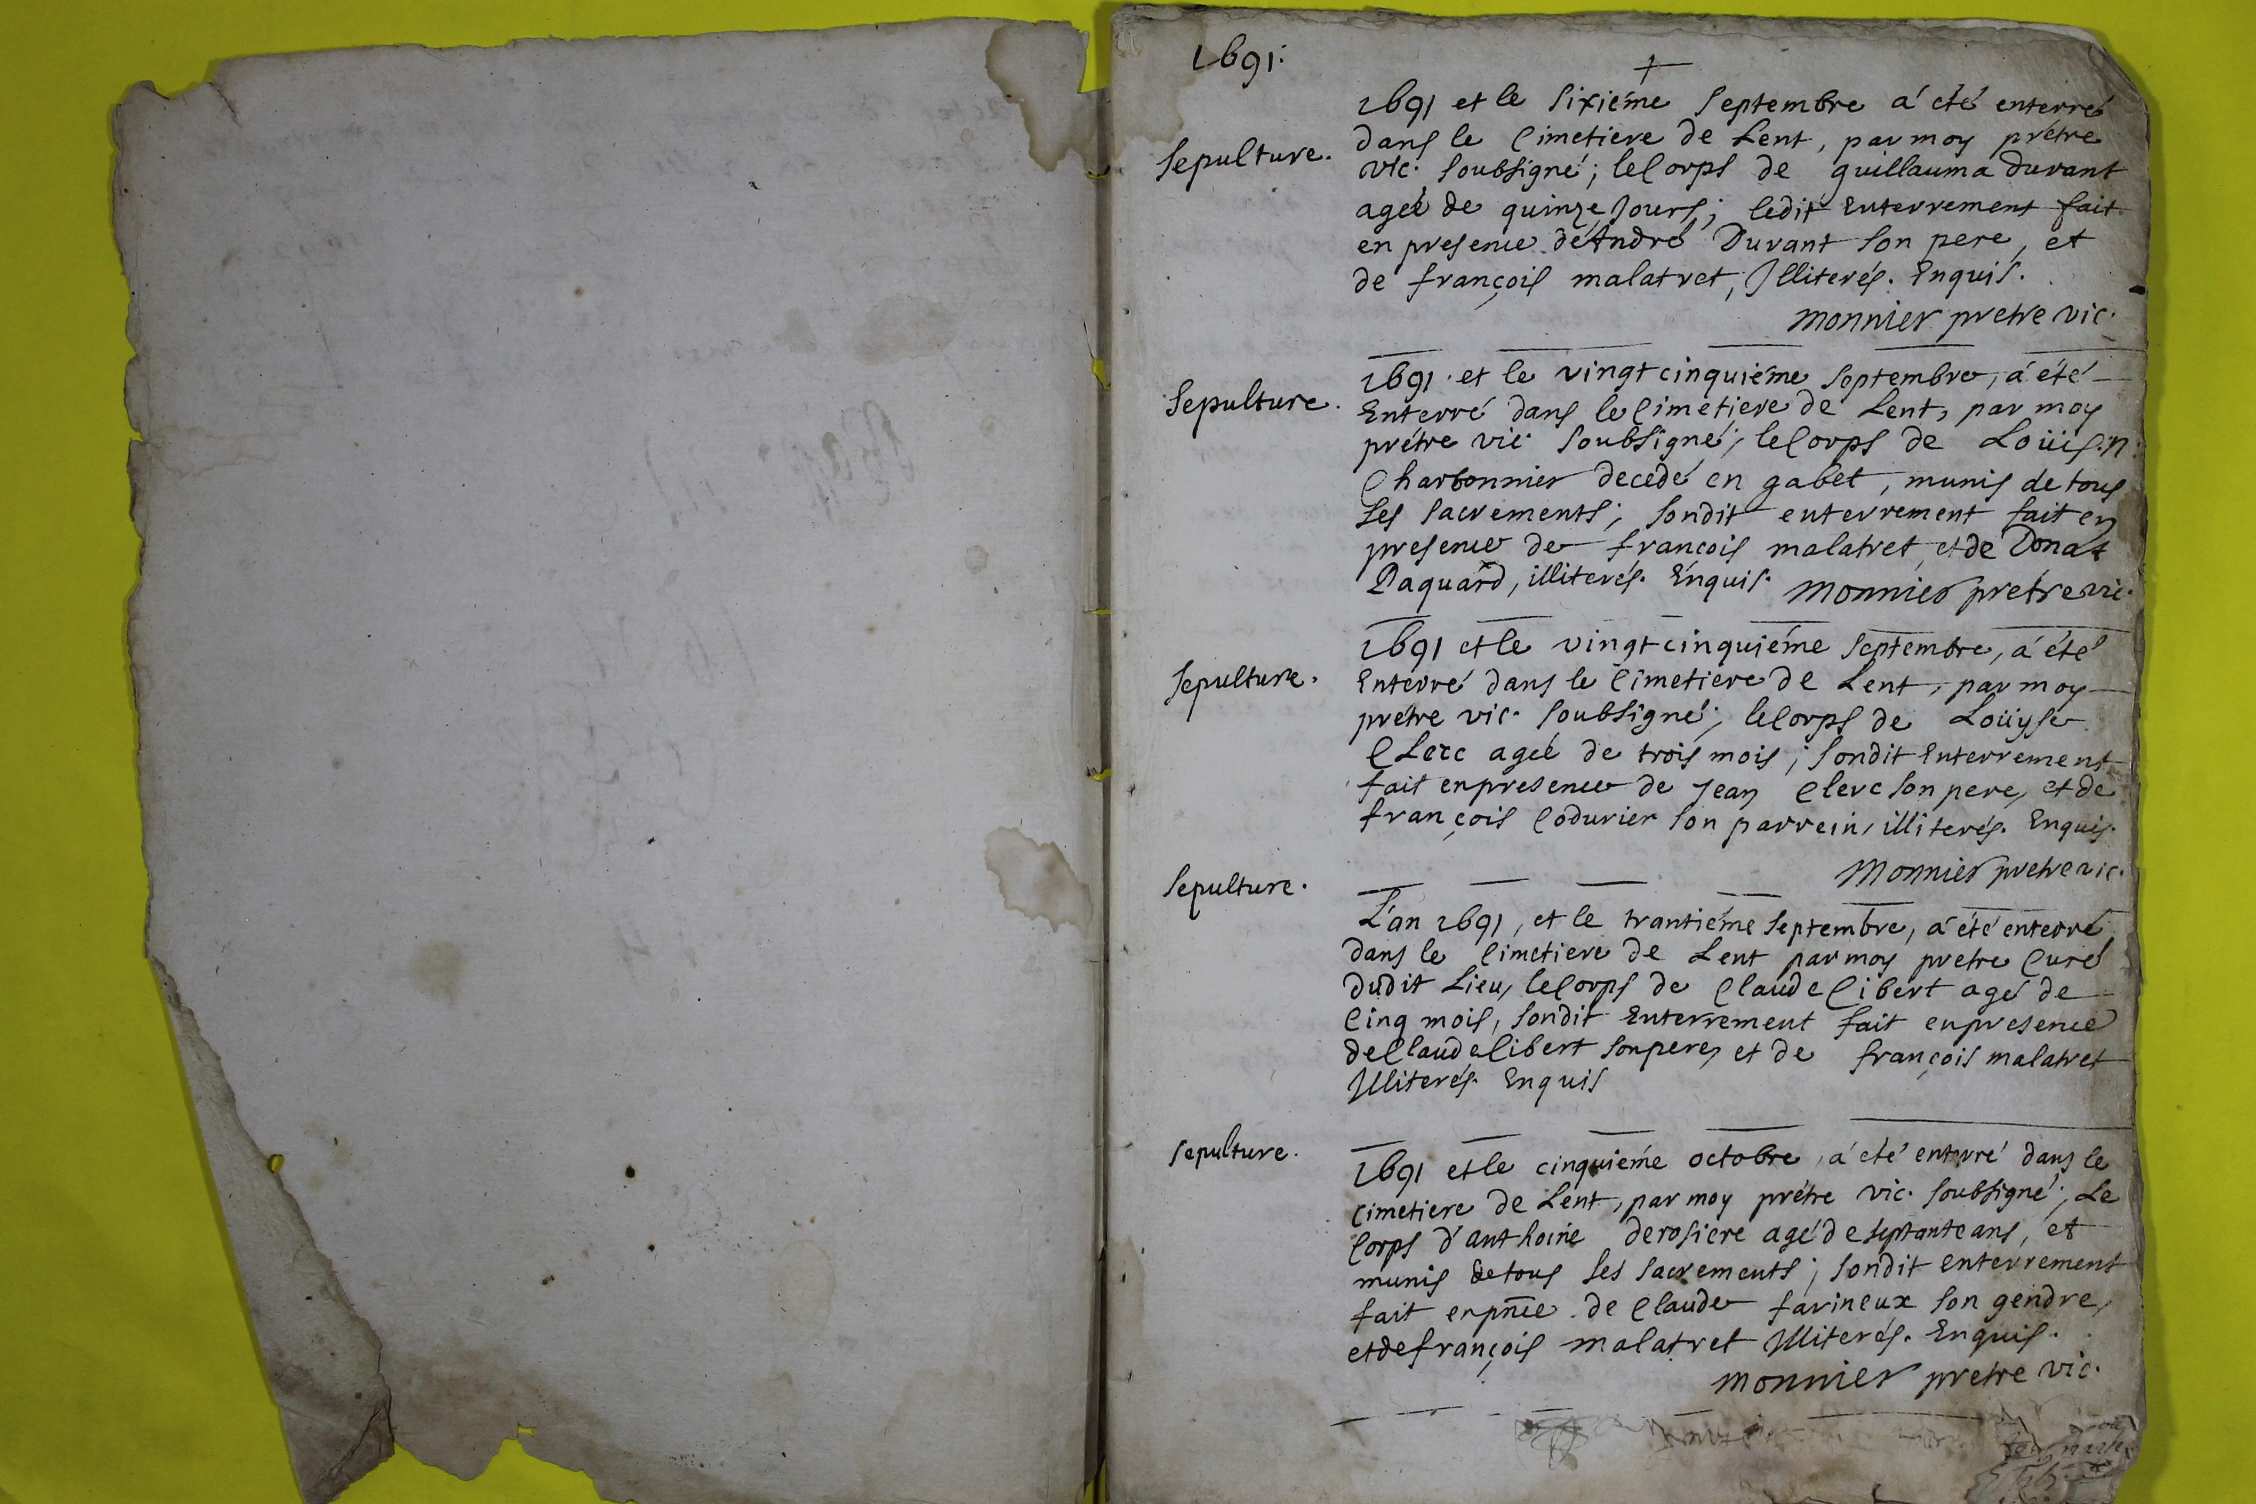 1691.
+
1691 et le sixiéme septembre á été enterré
Sepulture.
dans le Cimetiere de Lent, par moy prétre
vic. soubsigné; le Corps de guillauma durant
ageé de quinze Jours; ledit Enterrement fait
en presence de André Durant son pere, et
de françois malatret, Illiterés. Enquis.
Monnier pretre vic.
1691. et le vingt cinquiéme septembre, á été
Sepulture.
Enterré dans le Cimetiere de Lent, par moy
prétre vic. soubsigné; le Corps de Loüis.n.
Charbonnier decedé en gabet, munis de tous
ses sacrements; sondit enterrement fait en
presence de françois malatret, et de Donat
Paquard, illiterés. Enquis. Monnier pretre vic.
1691 et le vingt cinquiéme septembre, á été
Sepulture.
Enterré dans le Cimetiere de Lent, par moy
prétre vic. soubsigné; le Corps de Loüyse
Clerc ageé de trois mois; sondit Enterrement
fait en presence de Jean Clerc son pere, et de
françois Codurier son parrein, illiterés. Enquis.
Monnier pretre vic.
Sepulture.
L'an 1691, et le trantiéme septembre, á été enterré
dans le Cimetiere de Lent par moy pretre Curé
dudit Lieu, le Corps de Claude Cibert agé de
Cinq mois, sondit Enterrement fait en presence
de Claude Cibert son pere, et de françois malatret
Illiterés. Enquis
Sepulture.
1691 et le cinquiéme octobre, á été enterré dans le
Cimetiere de Lent, par moy prétre vic. soubsigné; Le
Corps d'anthoine derosiere agé de septante ans, et
munis de tous ses sacrements; sondit enterrement
fait en pnce de Claude farineux son gendre,
et de françois malatret Illiterés. Enquis.
Monnier pretre vic.